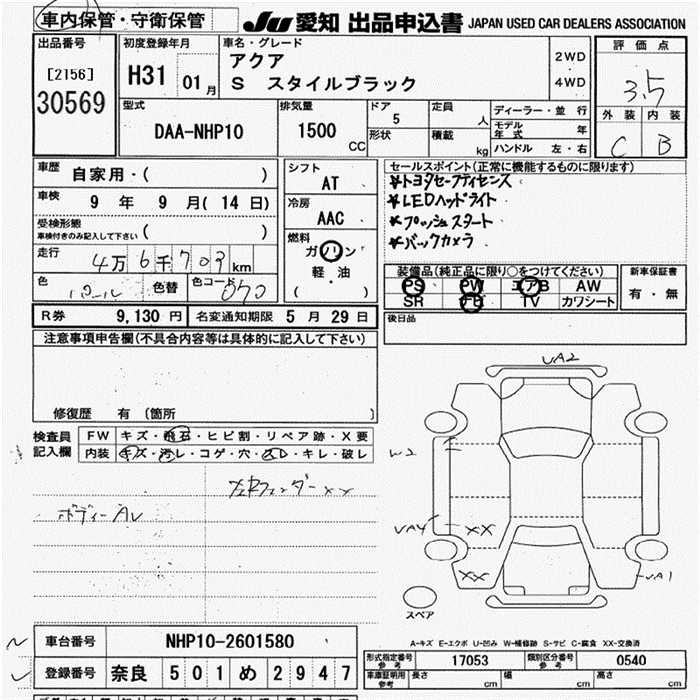 車内保管・守衛保管
JU 愛知 出品申込書 JAPAN USED CAR DEALERS ASSOCIATION
出品番号
[2156]
30569
初度登録年月
H31 01月
車名・グレード
アクア
S スタイルブラック
2WD
4WD
評価点
3.5
外装 内装
C B
型式
DAA-NHP10
排気量
1500 CC
ドア
5
形状
定員
人
積載
kg
ディーラー・並行
モデル年式 年
ハンドル 左・右
車歴
自家用・( )
車検
9 年 9 月 ( 14 日)
受検形態
車検付きのみ記入して下さい ( )
走行
4万6千703km
色
パール
色替
色コード
070
シフト
AT
冷房
AAC
燃料
ガソリン
軽・油
( )
セールスポイント(正常に機能するものに限ります)
*トヨタセーフティセンス
*LEDヘッドライト
*プッシュスタート
*バックカメラ
装備品(純正品に限り○をつけてください)
PS PW エアB AW
SR TV カワシート
新車保証書
有・無
後日品
R券 9,130 円 名変通知期限 5 月 29 日
注意事項申告欄(不具合内容等は具体的に記入して下さい)
修復歴 有 〔箇所 〕
検査員
記入欄
FW キズ・飛石・ヒビ割・リペア跡・X要
内装 キズ・汚レ・コゲ・穴・スレ・キレ・破レ
左右フェンダーXX
ボディーAU
UA2
W2
UA4
XX
XX
UA1
スペア
A-キズ E-エクボ U-凹み W-補修跡 S-サビ C-腐食 XX-交換済
車台番号 NHP10-2601580
登録番号 奈良 501 め 2947
型式指定番号 参考 17053
類別区分番号 参考 0540
車庫証明用 参考 長さ cm 幅 cm 高さ cm